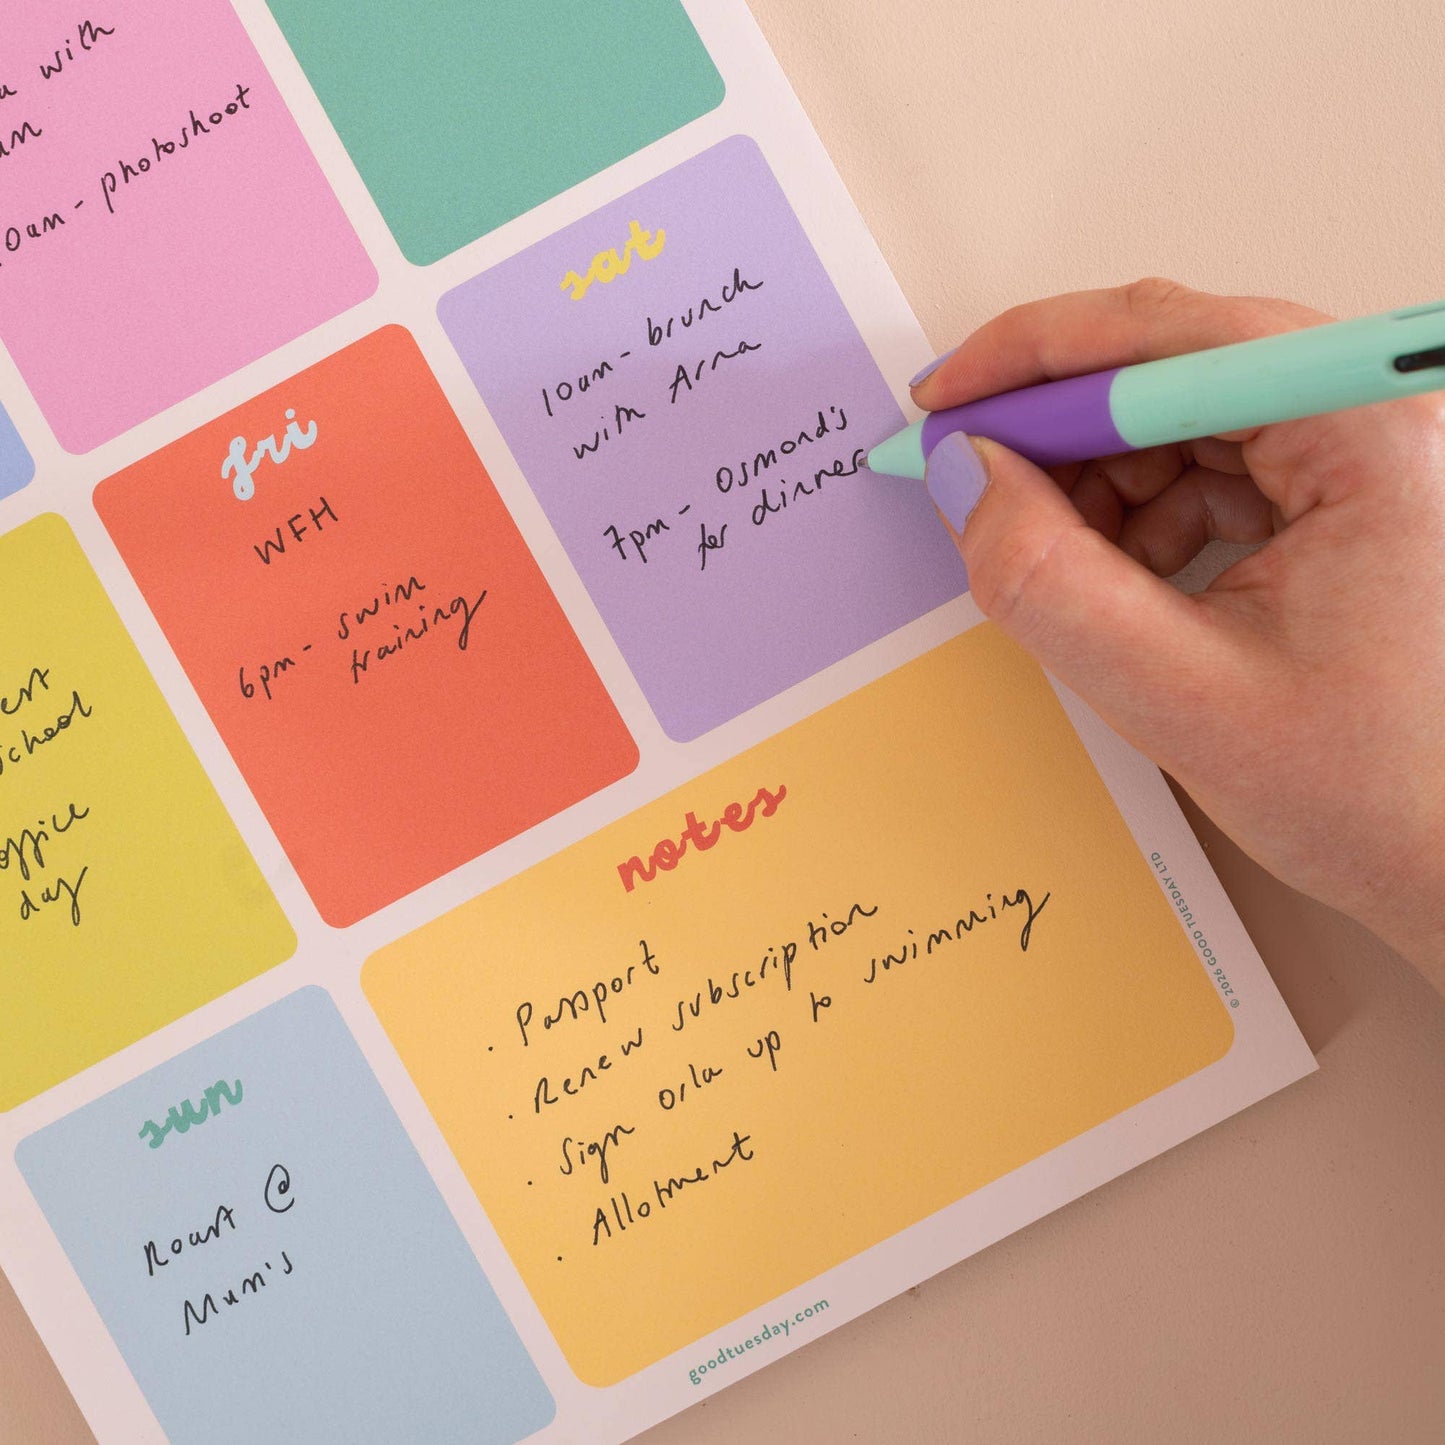 with
photoshoot
sat
10am - brunch
with Anna
7pm - Osmond's
for dinner
fri
WFH
6pm - swim
training
School
office
day
notes
. Passport
. Renew subscription
. Sign Orla up to swimming
. Allotment
sun
Roast @
Mum's
goodtuesday.com
© 2026 GOOD TUESDAY LTD